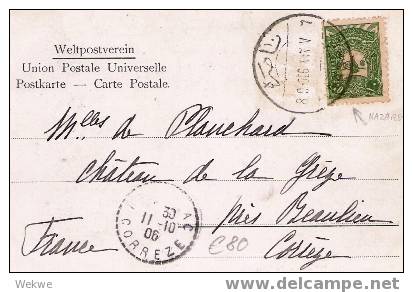 Weltpostverein
Union Postale Universelle
Postkarte — Carte Postale.
NAZARE
Mlles de Planchard
Château de la Grège
près Beaulieu
Corrèze
France
30
11-10
06
CORREZE
€80
Wekwe
delcampe.net